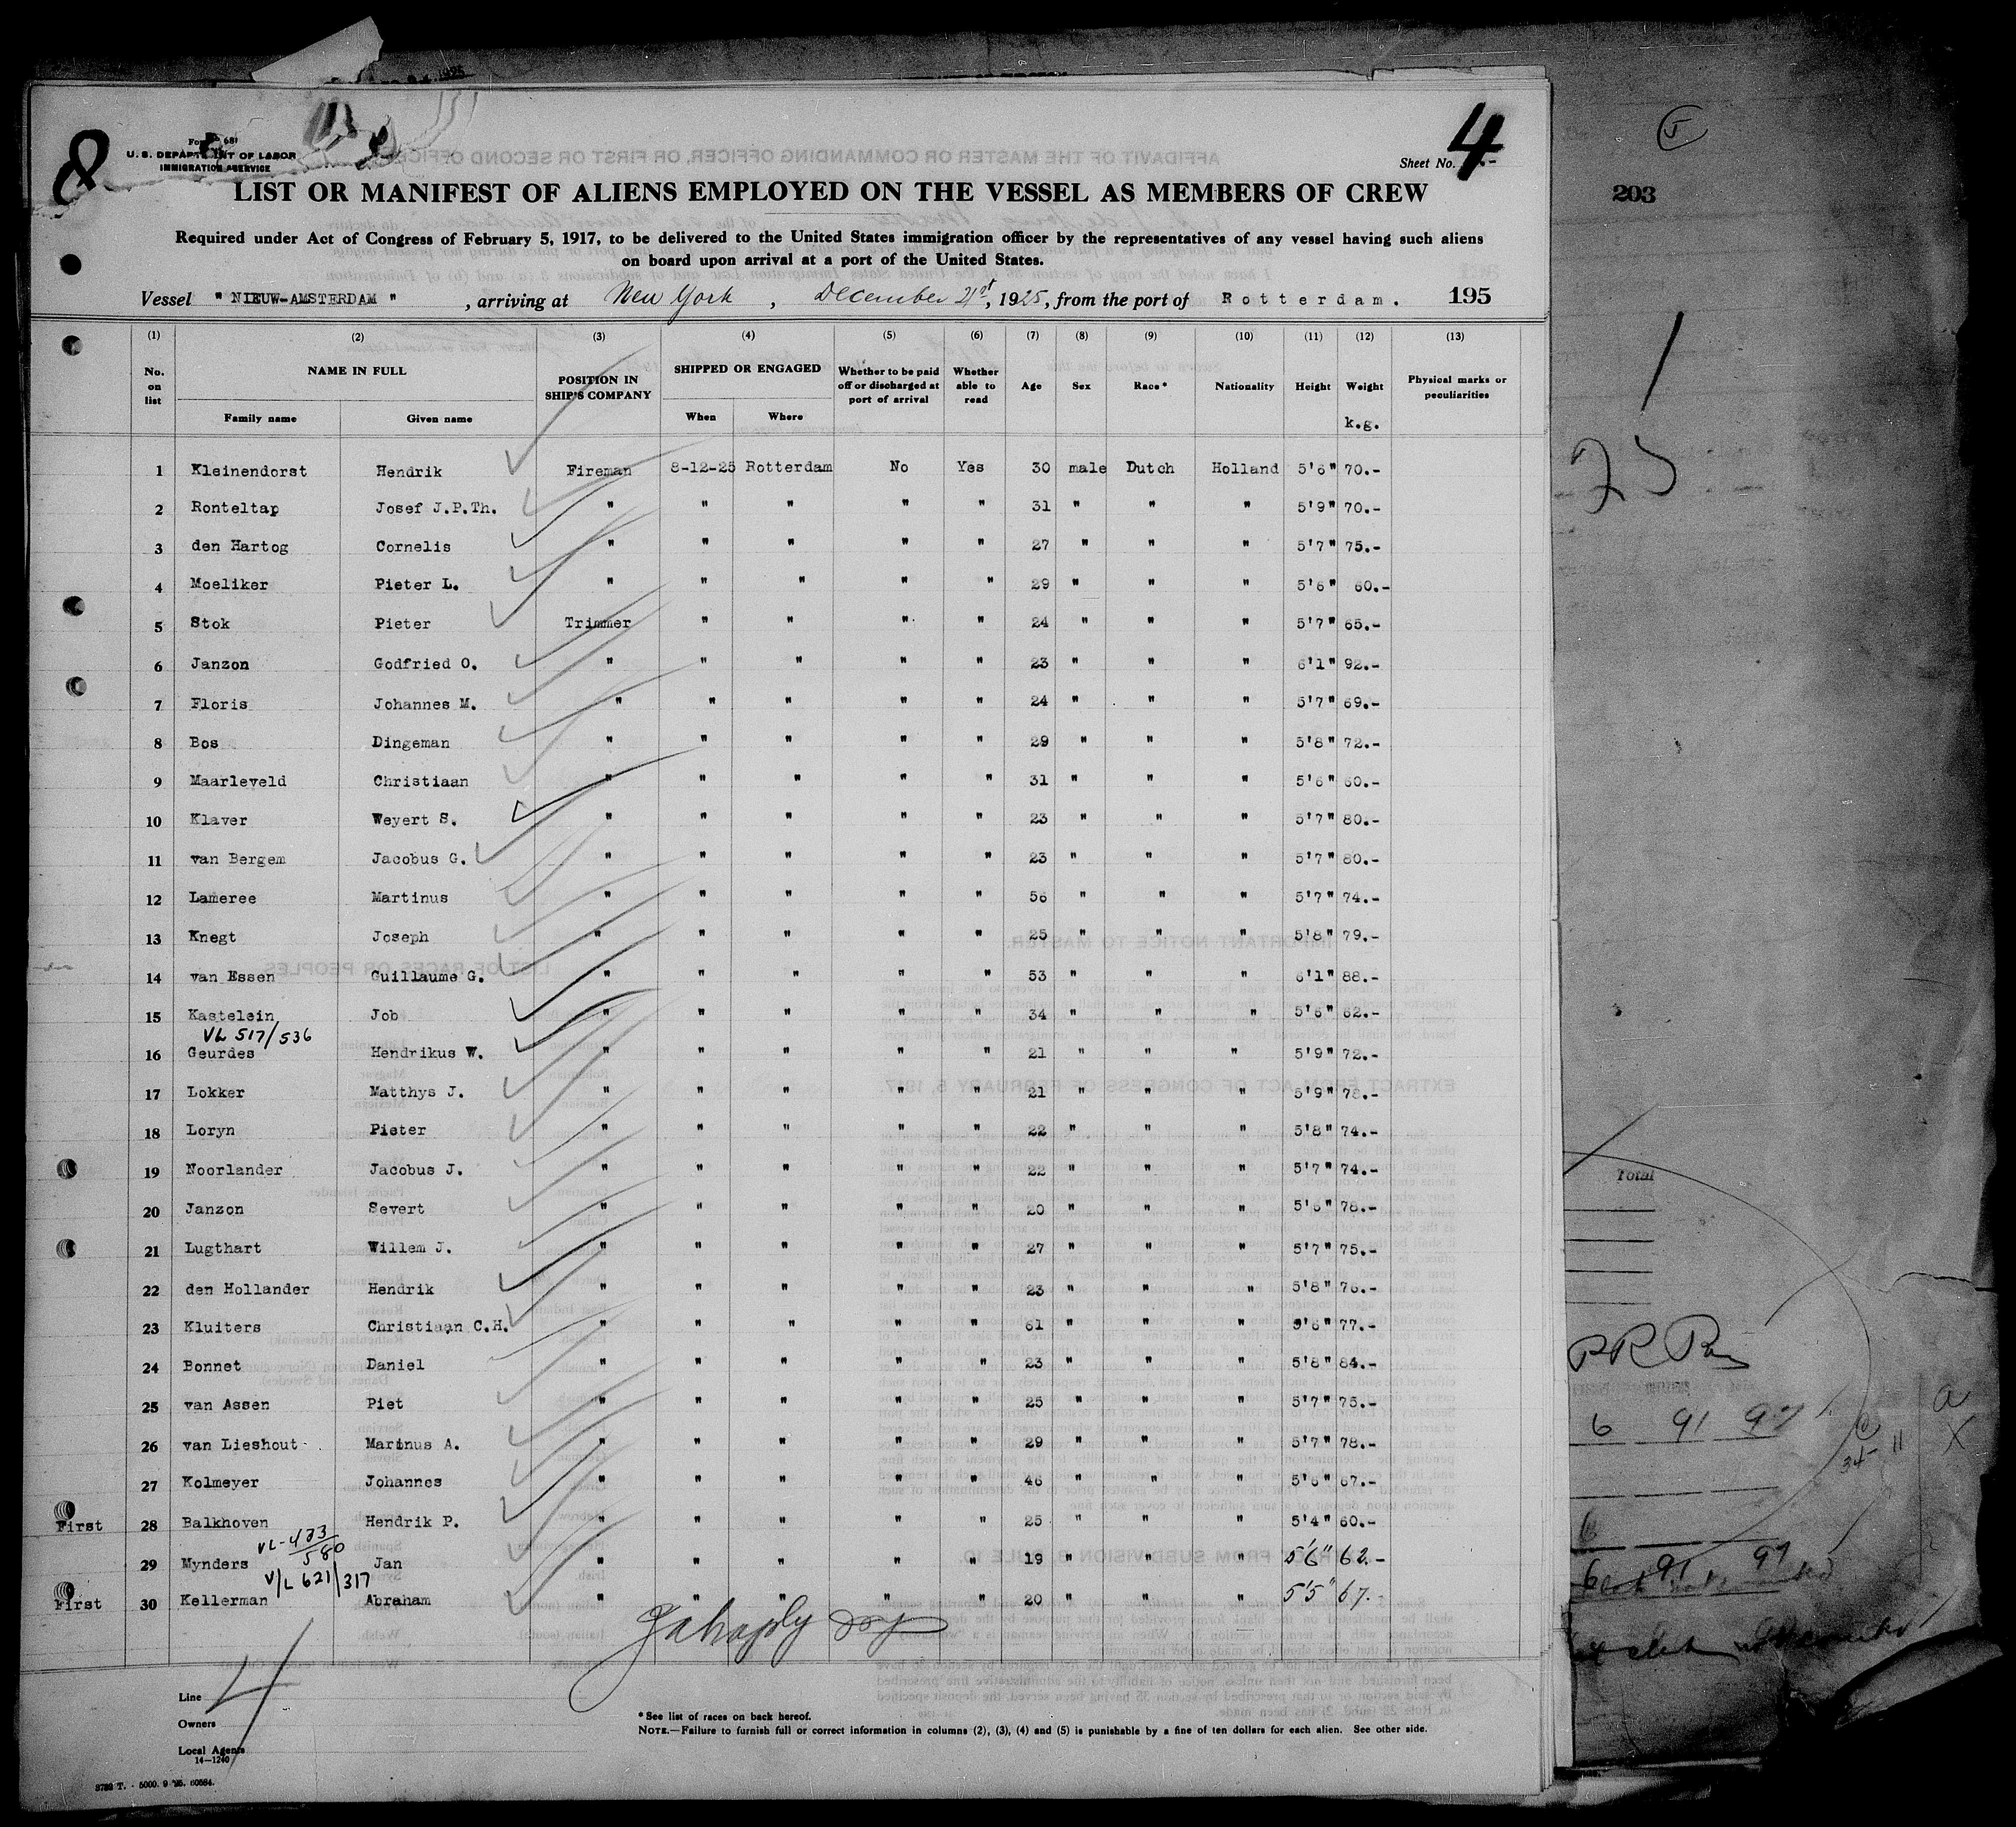 8
U. S. DEPARTMENT OF LABOR
IMMIGRATION SERVICE
Sheet No. 4
LIST OR MANIFEST OF ALIENS EMPLOYED ON THE VESSEL AS MEMBERS OF CREW
Required under Act of Congress of February 5, 1917, to be delivered to the United States immigration officer by the representatives of any vessel having such aliens
on board upon arrival at a port of the United States.
Vessel " NIEUW-AMSTERDAM " , arriving at New York , December 21st, 1925, from the port of Rotterdam. 195
(1) (2) (3) (4) (5) (6) (7) (8) (9) (10) (11) (12) (13)
No. on list NAME IN FULL Family name Given name POSITION IN SHIP'S COMPANY SHIPPED OR ENGAGED When Where Whether to be paid off or discharged at port of arrival Whether able to read Age Sex Race* Nationality Height Weight k.g. Physical marks or peculiarities
1 Kleinendorst Hendrik Fireman 8-12-25 Rotterdam No Yes 30 male Dutch Holland 5'6" 70.-
2 Ronteltap Josef J.P.Th. " " " " " 31 " " " 5'9" 70.-
3 den Hartog Cornelis " " " " " 27 " " " 5'7" 75.-
4 Moeliker Pieter L. " " " " " 29 " " " 5'6" 60.-
5 Stok Pieter Trimmer " " " " 24 " " " 5'7" 65.-
6 Janzon Godfried O. " " " " " 23 " " " 6'1" 92.-
7 Floris Johannes M. " " " " " 24 " " " 5'7" 69.-
8 Bos Dingeman " " " " " 29 " " " 5'8" 72.-
9 Maarleveld Christiaan " " " " " 31 " " " 5'6" 60.-
10 Klaver Weyert S. " " " " " 23 " " " 5'7" 80.-
11 van Bergem Jacobus G. " " " " " 23 " " " 5'7" 80.-
12 Lameree Martinus " " " " " 56 " " " 5'7" 74.-
13 Knegt Joseph " " " " " 25 " " " 5'8" 79.-
14 van Essen Guillaume G. " " " " " 53 " " " 6'1" 88.-
15 Kastelein Job " " " " " 34 " " " 5'6" 62.-
VL 517/536
16 Geurdes Hendrikus W. " " " " " 21 " " " 5'9" 72.-
17 Lokker Matthys J. " " " " " 21 " " " 5'9"
18 Loryn Pieter " " " " " 22 " " " 5'8" 74.-
19 Noorlander Jacobus J. " " " " " 22 " " " 5'7" 74.-
20 Janzon Severt " " " " " 20 " " " 78.-
21 Lugthart Willem J. " " " " " 27 " " " 5'7" 75.-
22 den Hollander Hendrik " " " " " 23 " " " 5'8" 76.-
23 Kluiters Christiaan C.H. " " " " " 61 " " " 77.-
24 Bonnet Daniel " " " " " 23 " " " 5'8" 84.-
25 van Assen Piet " " " " " 25 " " " 5'7" 75.-
26 van Lieshout Marinus A. " " " " " 29 " " " 5'7" 78.-
27 Kolmeyer Johannes " " " " " 46 " " " 5'6" 67.-
First 28 Balkhoven Hendrik P. " " " " " 25 " " " 5'4" 60.-
VL-423/580
29 Mynders Jan " " " " " 19 " " " 5'6" 62.-
V/L 621/317
First 30 Kellerman Abraham " " " " " 20 " " " 5'5" 67.-
4
Line
Owners
Local Agents
14—1240
* See list of races on back hereof.
NOTE.—Failure to furnish full or correct information in columns (2), (3), (4) and (5) is punishable by a fine of ten dollars for each alien. See other side.
203
Total
6 91 97
6 91 97